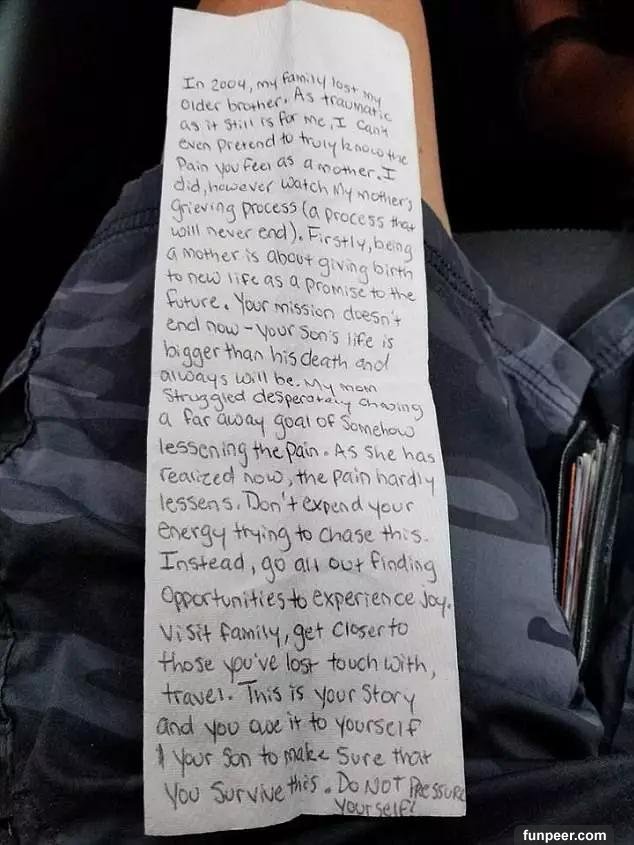 In 2004, my family lost my
older brother. As traumatic
as it still is for me, I can't
even pretend to truly know the
Pain you feel as a mother. I
did, however watch My mother's
grieving process (a process that
will never end). Firstly, being
a mother is about giving birth
to new life as a promise to the
future. Your mission doesn't
end now - your son's life is
bigger than his death and
always will be. My mom
struggled desperately chasing
a far away goal of somehow
lessening the pain. As she has
realized now, the pain hardly
lessens. Don't expend your
energy trying to chase this.
Instead, go all out finding
opportunities to experience joy.
Visit family, get closer to
those you've lost touch with,
travel. This is your story
and you owe it to yourself
& your son to make sure that
you survive this. DO NOT PRESSURE
yourself!
funpeer.com